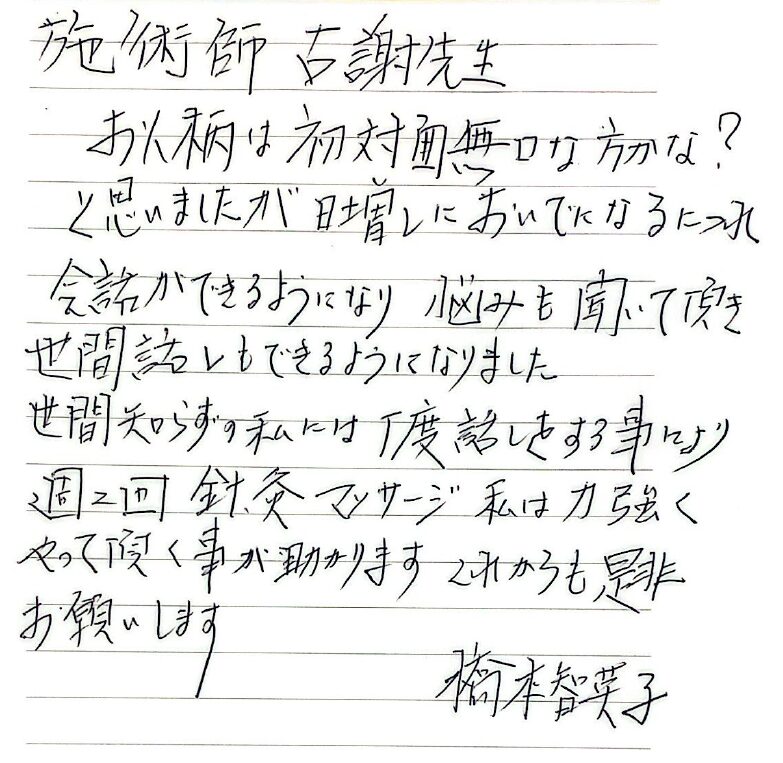 施術師 古謝先生
お人柄は初対面無口な方かな?
と思いましたが日増しにおいでになるにつれ
会話ができるようになり 悩みも聞いて頂き
世間話しもできるようになりました
世間知らずの私には丁度話しをする事により
週2回 針灸マッサージ私は力強く
やって頂く事が助かります これからも是非
お願いします
橋本智英子